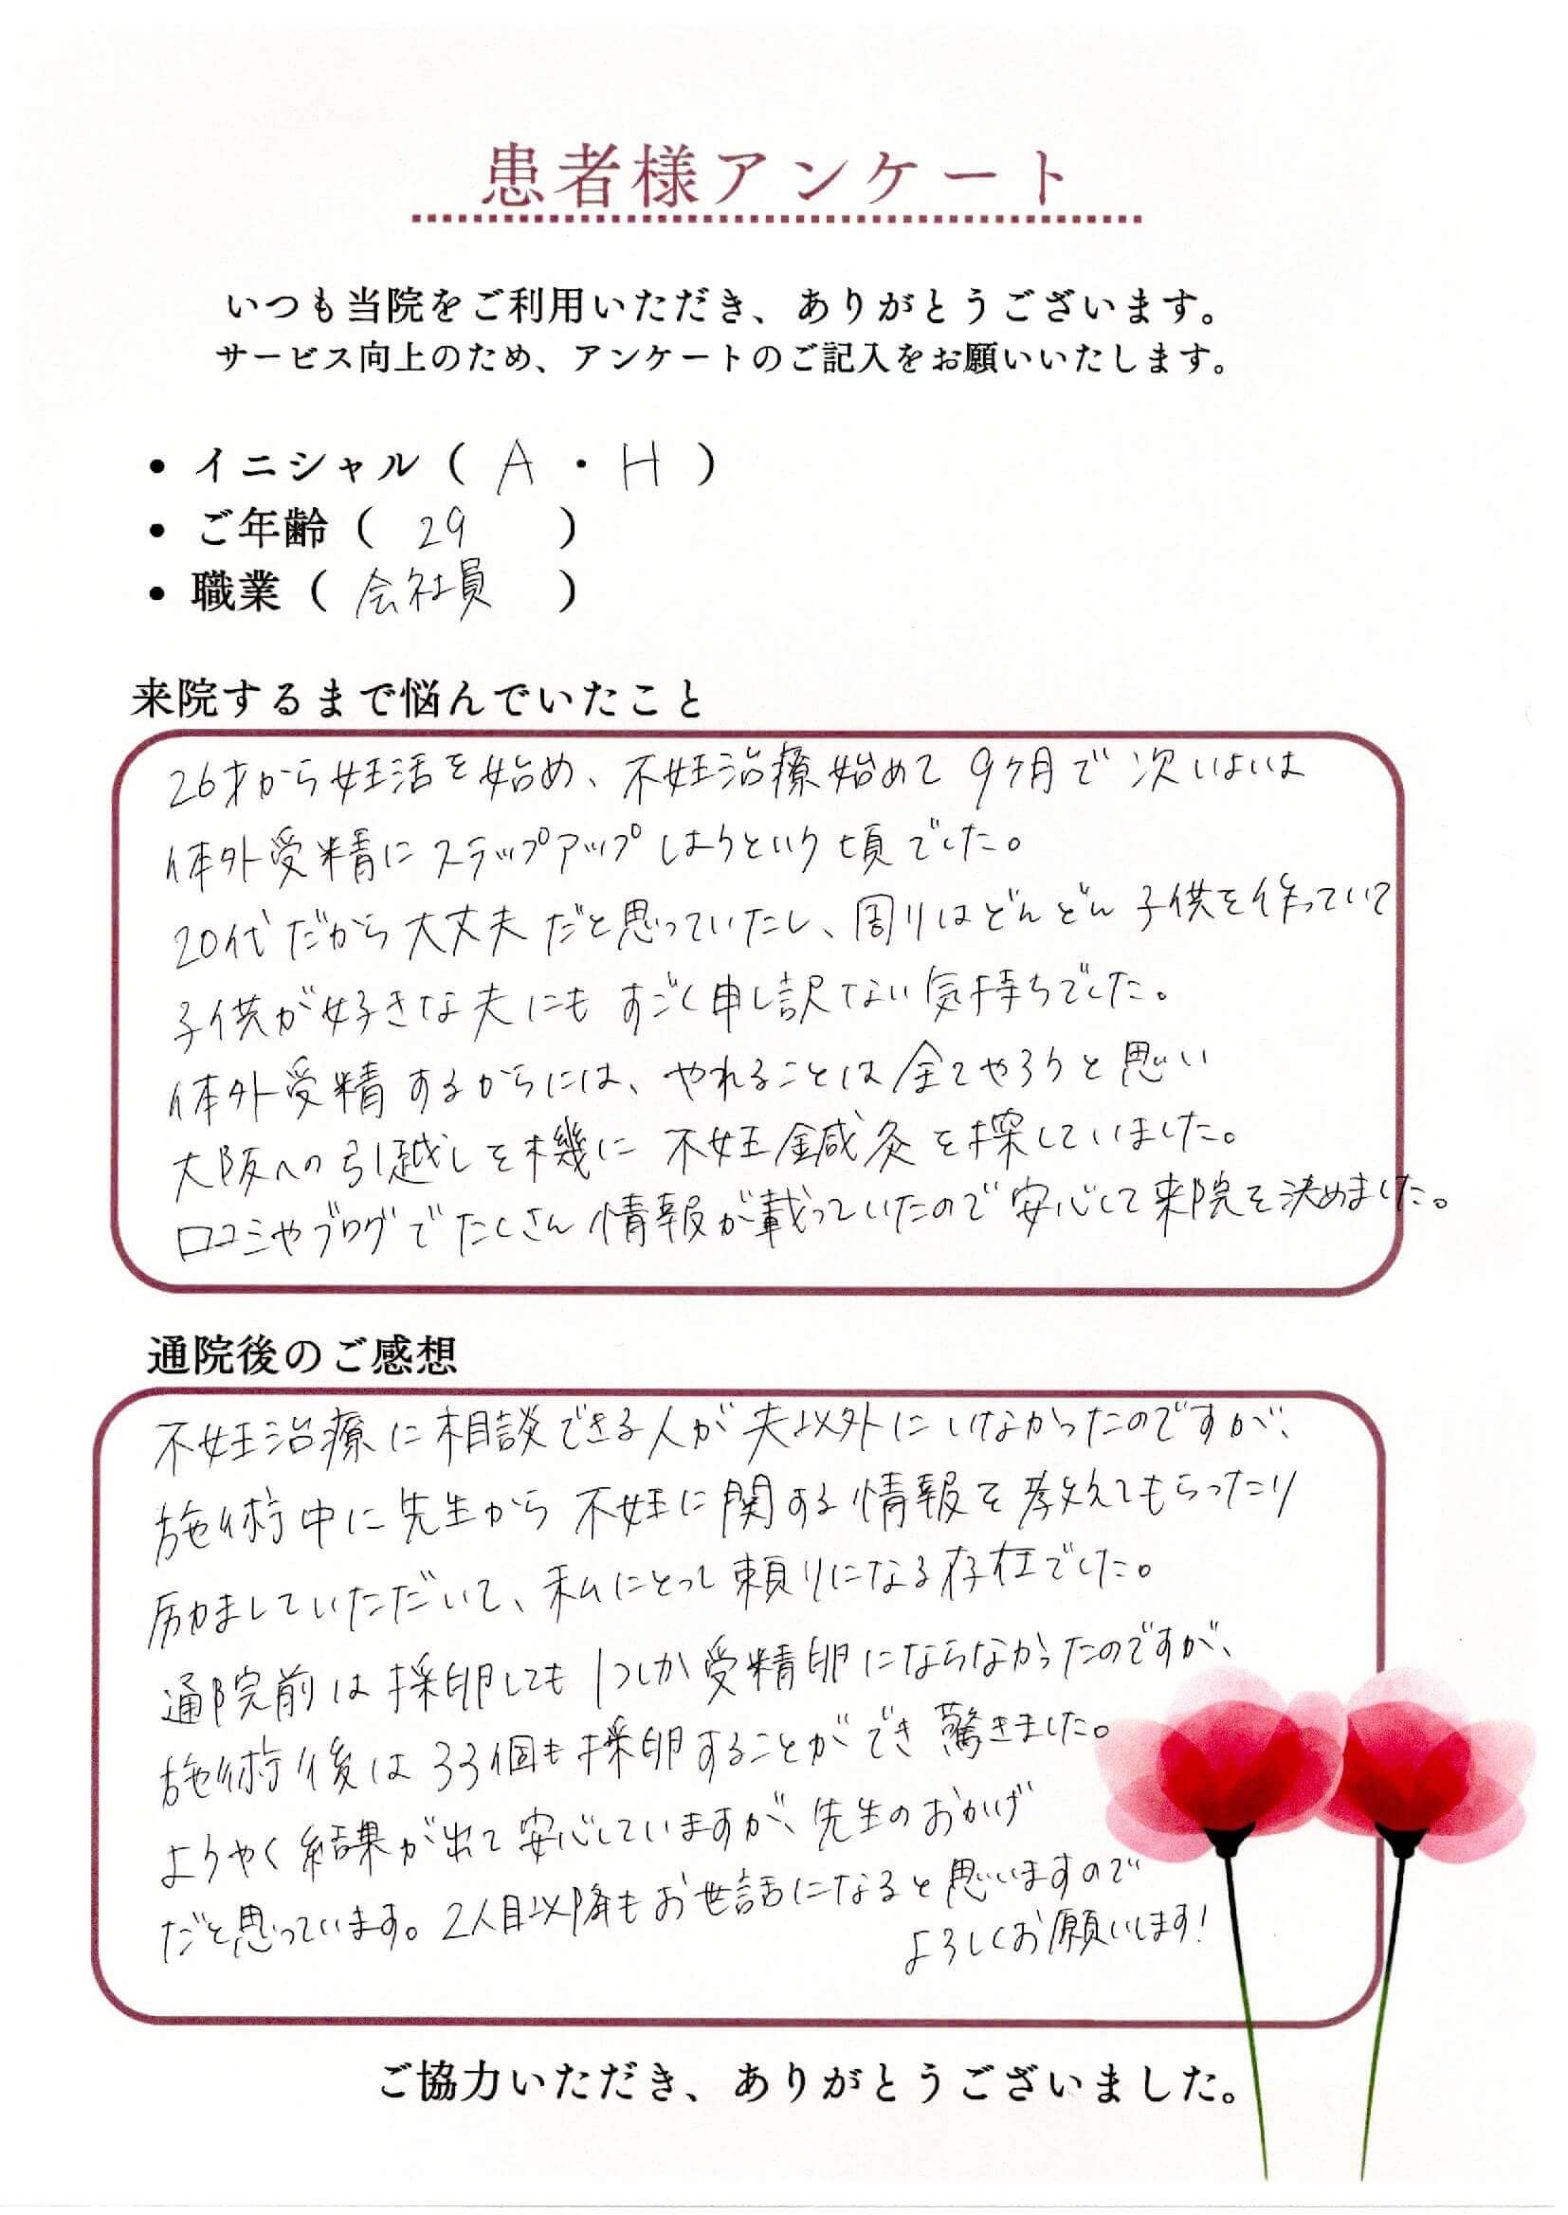 患者様アンケート
いつも当院をご利用いただき、ありがとうございます。
サービス向上のため、アンケートのご記入をお願いいたします。
• イニシャル（ A ・ H ）
• ご年齢（ 29 ）
• 職業（ 会社員 ）
来院するまで悩んでいたこと
26才から妊活を始め、不妊治療始めて 9ヶ月で 次いよいよ
体外受精に ステップアップ しようという 頃でした。
20代だから大丈夫だと思っていたし、周りはどんどん子供を作っていて
子供が好きな夫にも すごく申し訳てない気持ちでした。
体外受精するからには、やれることは全てやろうと思い
大阪への引越しを機に 不妊鍼灸を探していました。
口コミやブログでたくさん情報が載っていたので安心して来院を決めました。
通院後のご感想
不妊治療に相談できる人が夫以外にいなかったのですが、
施術中に先生から不妊に関する情報を教えてもらったり
励ましていただいて、私にとって頼りになる存在でした。
通院前は採卵しても1つしか受精卵にならなかったのですが、
施術後は33個も採卵することができ驚きました。
ようやく結果が出て安心していますが、先生のおかげ
だと思っています。2人目以降もお世話になると思いますので
よろしくお願いします!
ご協力いただき、ありがとうございました。